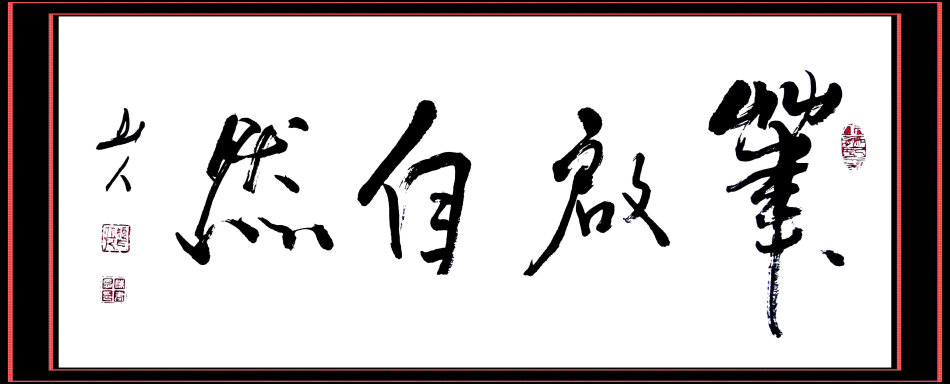 筆啟自然
山人